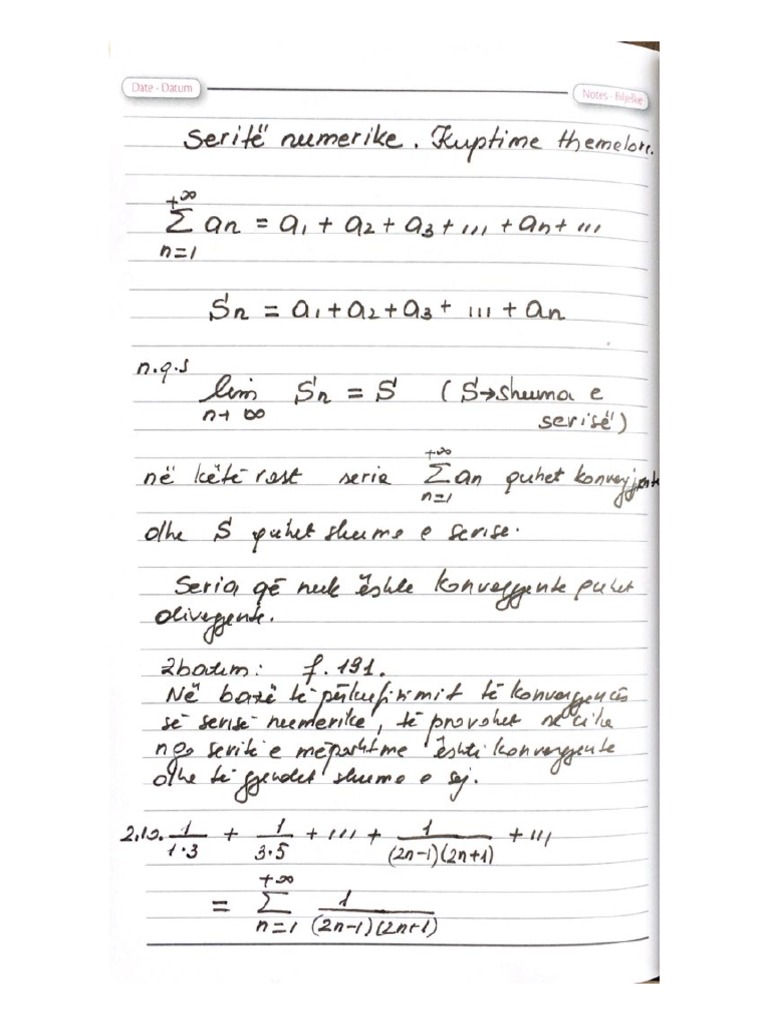 Date - Datum
Notes - Bilješke
Seritë numerike. Kuptime themelore.
+∞
Σ an = a1 + a2 + a3 + ... + an + ...
n=1
Sn = a1 + a2 + a3 + ... + an
n.q.s
lim Sn = S (S→shuma e
n→∞ serisë)
+∞
në këtë rast seria Σ an quhet konvergjente
n=1
dhe S quhet shuma e serise.
Seria që nuk është konvergjente quhet
divergjente.
Zbatim: f. 191.
Në bazë të përkufizimit të konvergjencës
së serisë numerike, të provohet se cila
nga seritë e mëposhtme është konvergjente
dhe të gjendet shuma e saj.
2.10. 1/(1·3) + 1/(3·5) + ... + 1/((2n-1)(2n+1)) + ...
+∞
= Σ 1/((2n-1)(2n+1))
n=1